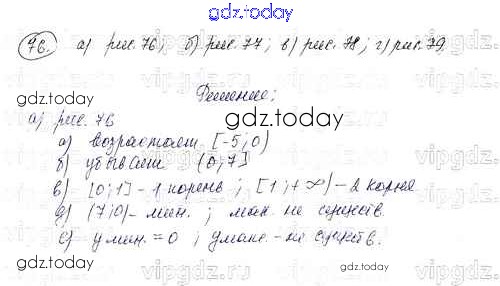 gdz.today
76. а) рис. 76; б) рис. 77; в) рис. 78; г) рис. 79.
gdz.today
Решение:
а) рис. 76
gdz.today
а) возрастает [-5; 0)
б) убывает (0; 7]
в) [0; 1] - 1 корень; [1; +∞) - 2 корня
д) (7; 0) - мин.; мак. не существ.
е) y мин. = 0; y макс. - не существ.
gdz.today
gdz.today